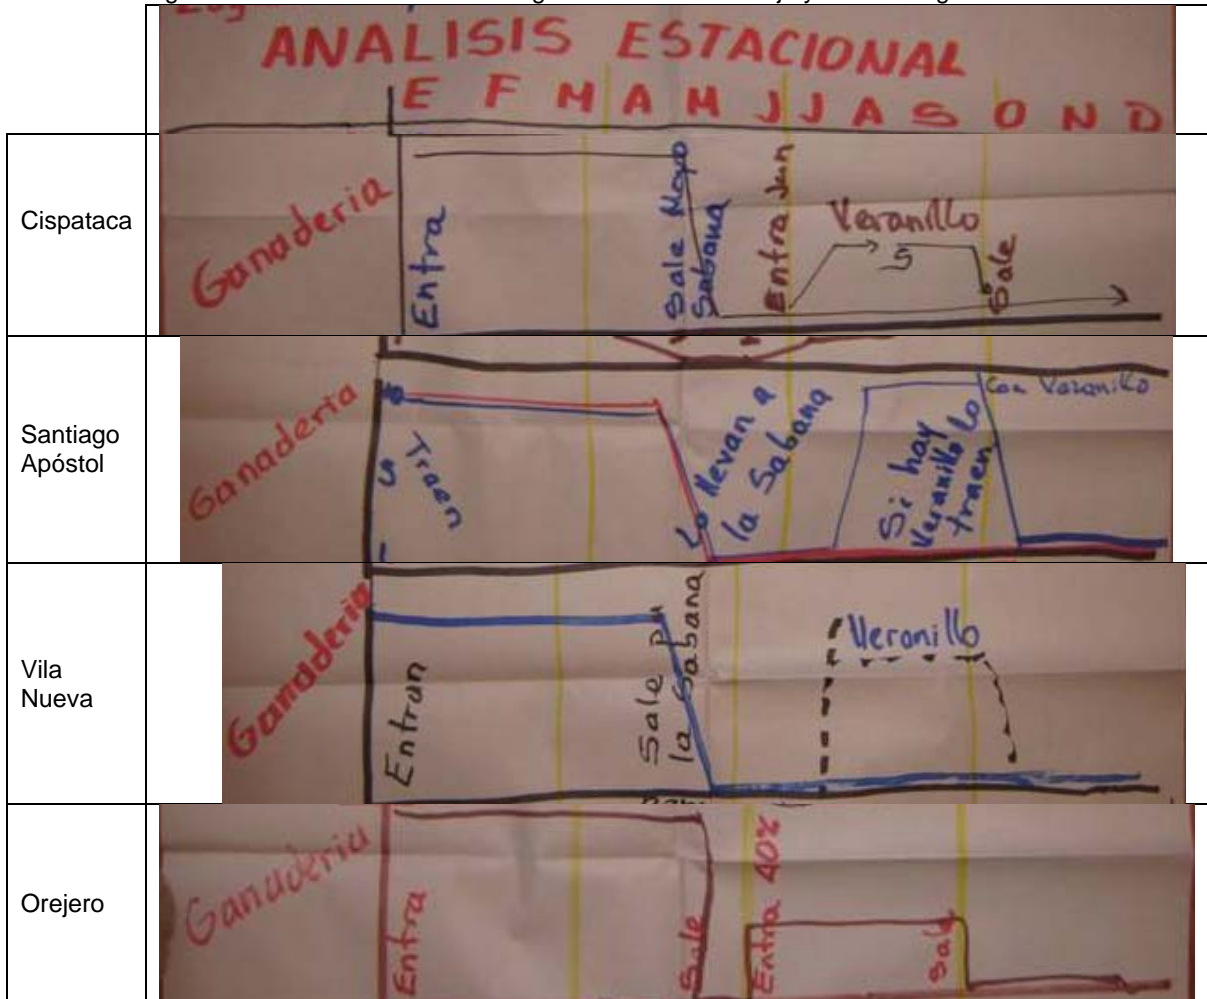 ANALISIS ESTACIONAL
E F M A M J J A S O N D
Cispataca
Ganaderia
Entra
Sale Mayo
Sabana
Entra Jun
Veranillo
S
Sale
Santiago
Apóstol
Ganaderia
S
Traen
Lo llevan a
la Sabana
Si hay
Veranillo lo
traen
Con Veranillo
Vila
Nueva
Ganaderia
Entran
Sale pa
la Sabana
Veranillo
Orejero
Ganaderia
Entra
Sale
Entra 40%
Sale